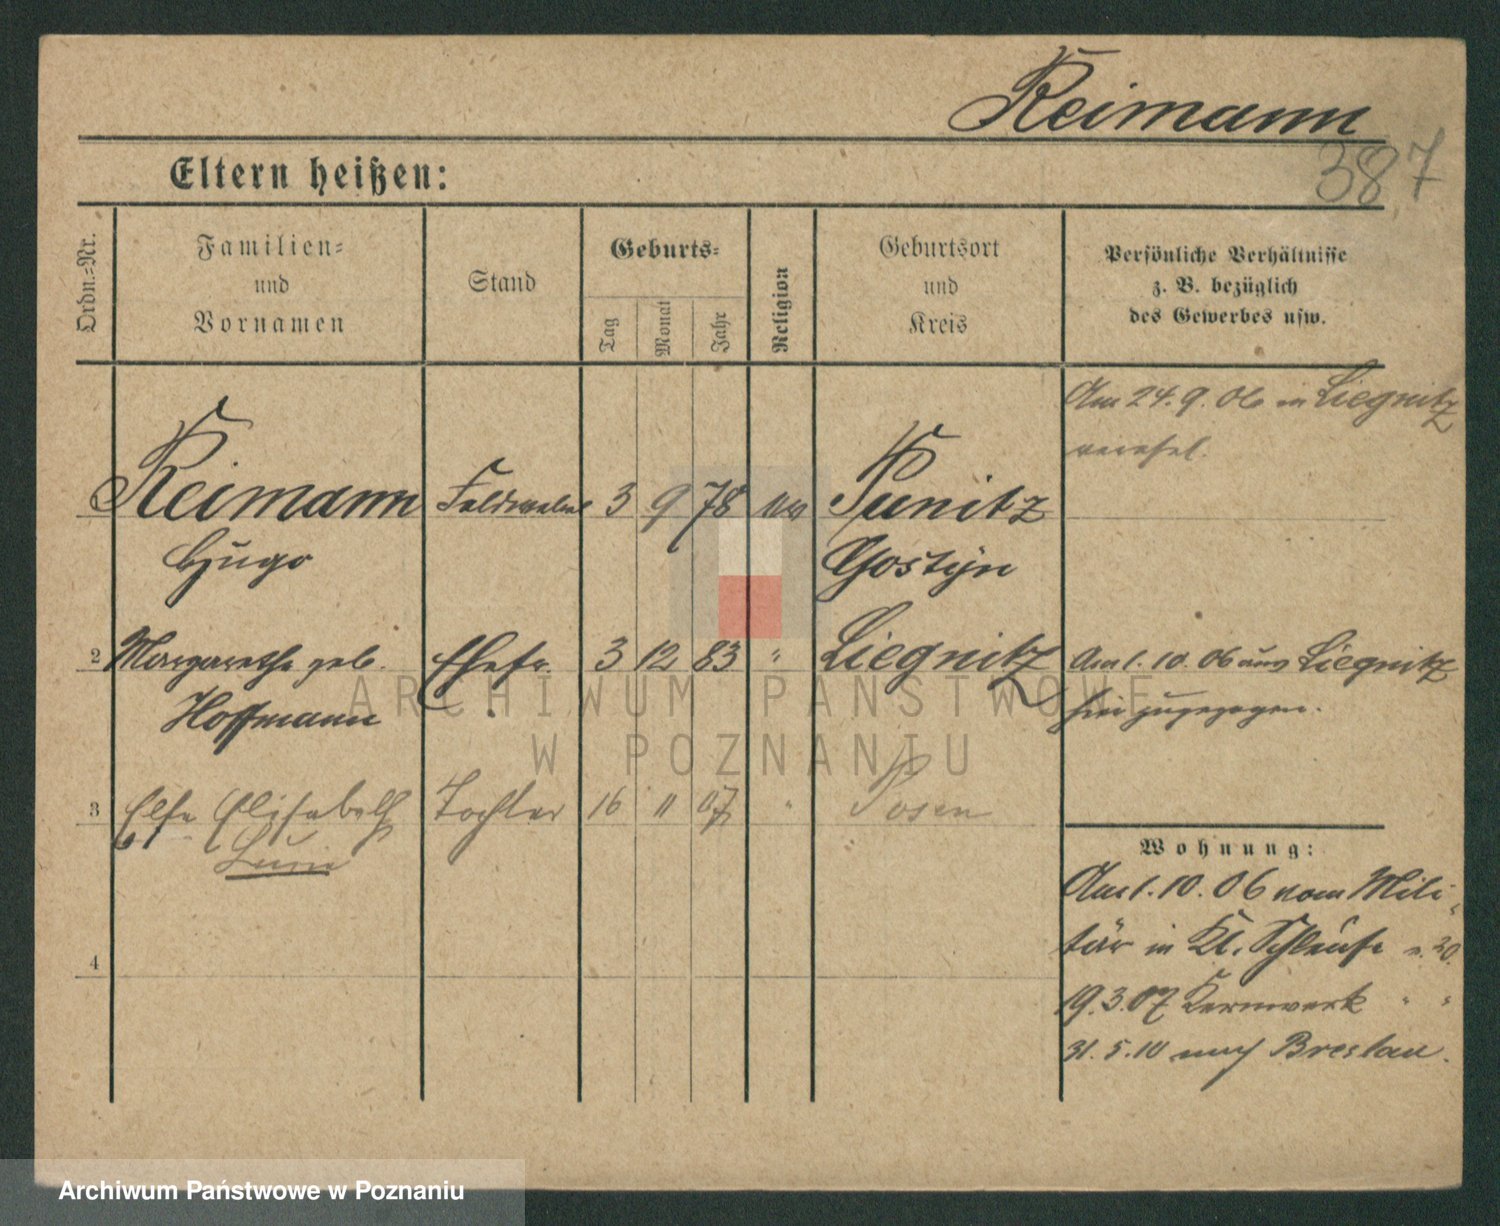 Reimann
387
Eltern heißen:
Ordn.=Nr.
Familien=
und
Vornamen
Stand
Geburts=
Tag
Monat
Jahr
Religion
Geburtsort
und
Kreis
Persönliche Verhältnisse
z. B. bezüglich
des Gewerbes usw.
Am 24. 9. 06 in Liegnitz
Reimann 3 9 78 Punitz
Hugo Gostyn
2 Margarethe geb. Ehefr. 3 12 83 " Liegnitz Am 1. 10. 06 aus Liegnitz
Hoffmann hier zugezogen.
3 Else Elisabeth Tochter 16 11 07 " Posen
Wohnung:
Am 1. 10. 06 vom Mili-
tär in Kl. Schleuse
4
19. 3. 07 Kernwerk " "
31. 5. 10 nach Breslau.
ARCHIWUM PAŃSTWOWE
W POZNANIU
Archiwum Państwowe w Poznaniu